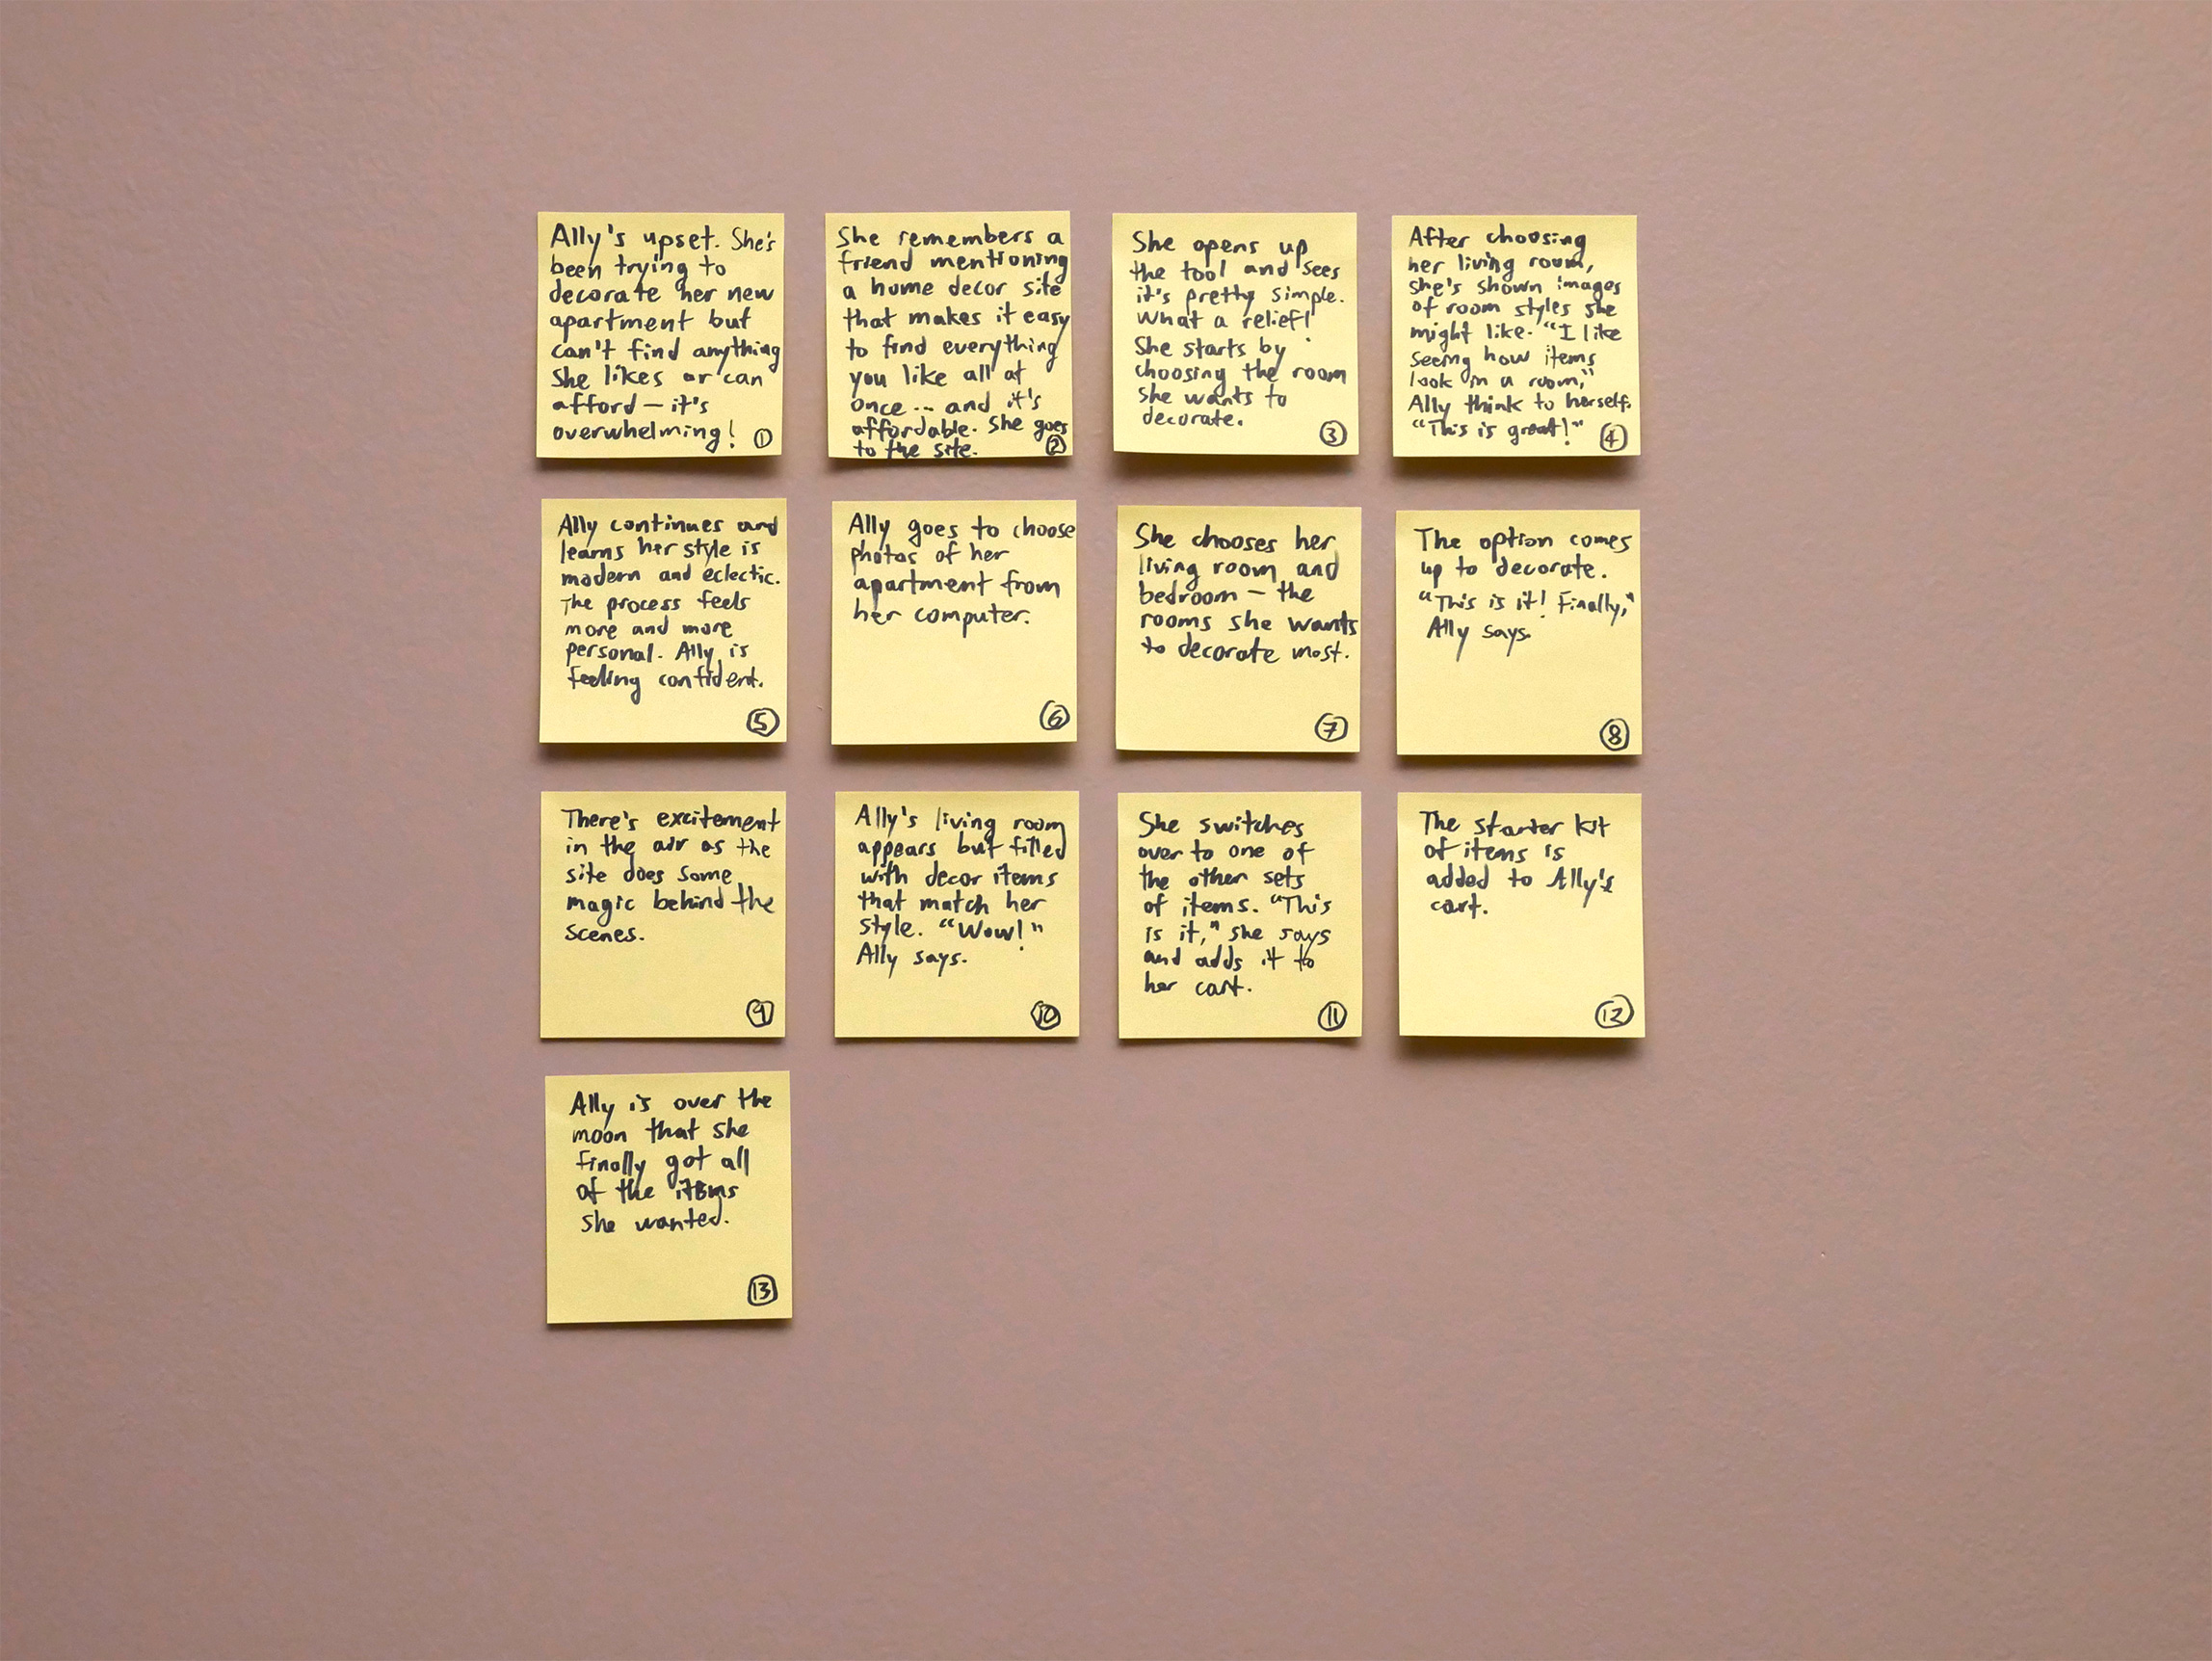 Ally's upset. She's
been trying to
decorate her new
apartment but
can't find anything
she likes or can
afford — it's
overwhelming!
1
She remembers a
friend mentioning
a home decor site
that makes it easy
to find everything
you like all at
once... and it's
affordable. She goes
to the site.
2
She opens up
the tool and sees
it's pretty simple.
What a relief!
She starts by
choosing the room
she wants to
decorate.
3
After choosing
her living room,
she's shown images
of room styles she
might like. "I like
seeing how items
look in a room,"
Ally think to herself.
"This is great!"
4
Ally continues and
learns her style is
modern and eclectic.
The process feels
more and more
personal. Ally is
feeling confident.
5
Ally goes to choose
photos of her
apartment from
her computer.
6
She chooses her
living room and
bedroom — the
rooms she wants
to decorate most.
7
The option comes
up to decorate.
"This is it! Finally,"
Ally says.
8
There's excitement
in the air as the
site does some
magic behind the
scenes.
9
Ally's living room
appears but filled
with decor items
that match her
style. "Wow!"
Ally says.
10
She switches
over to one of
the other sets
of items. "This
is it," she says
and adds it to
her cart.
11
The starter kit
of items is
added to Ally's
cart.
12
Ally is over the
moon that she
finally got all
of the items
she wanted.
13